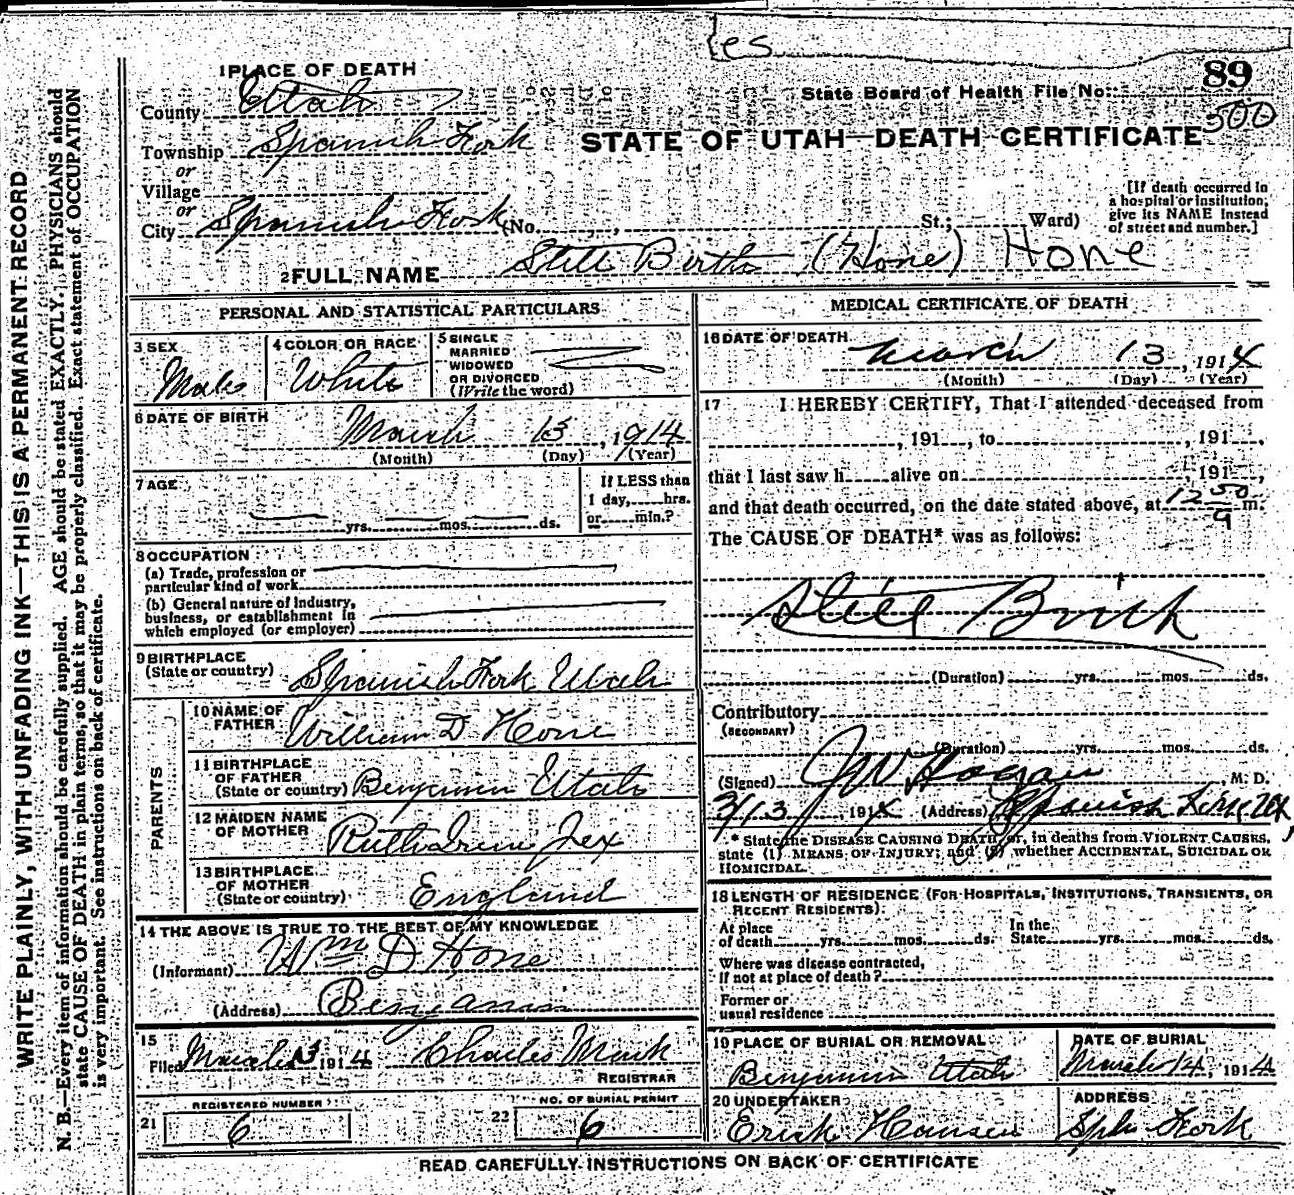 es
89
State Board of Health File No.
500
STATE OF UTAH—DEATH CERTIFICATE
1 PLACE OF DEATH
County Utah
Township Spanish Fork
or
Village
or
City Spanish Fork (No. , St.; Ward)
[If death occurred in
a hospital or institution,
give its NAME instead
of street and number.]
2 FULL NAME Still Birth (Hone) Hone
PERSONAL AND STATISTICAL PARTICULARS
3 SEX
Male
4 COLOR OR RACE
White
5 SINGLE
MARRIED
WIDOWED
OR DIVORCED
(Write the word)
6 DATE OF BIRTH
March 13, 1914
(Month) (Day) (Year)
7 AGE
yrs. mos. ds.
If LESS than
1 day, hrs.
or min.?
8 OCCUPATION
(a) Trade, profession or
particular kind of work
(b) General nature of industry,
business, or establishment in
which employed (or employer)
9 BIRTHPLACE
(State or country) Spanish Fork Utah
PARENTS
10 NAME OF
FATHER William D Hone
11 BIRTHPLACE
OF FATHER
(State or country) Benjamin Utah
12 MAIDEN NAME
OF MOTHER Ruth Jex
13 BIRTHPLACE
OF MOTHER
(State or country) England
14 THE ABOVE IS TRUE TO THE BEST OF MY KNOWLEDGE
(Informant) Wm D Hone
(Address) Benjamin
15
Filed March 13 1914 Charles Monk
REGISTRAR
21 REGISTERED NUMBER
6
22 NO. OF BURIAL PERMIT
6
MEDICAL CERTIFICATE OF DEATH
16 DATE OF DEATH
March 13, 1914
(Month) (Day) (Year)
17 I HEREBY CERTIFY, That I attended deceased from
, 191 , to , 191 ,
that I last saw h alive on , 191 ,
and that death occurred, on the date stated above, at 12 50 a m.
The CAUSE OF DEATH* was as follows:
Still Birth
(Duration) yrs. mos. ds.
Contributory
(SECONDARY)
(Duration) yrs. mos. ds.
(Signed) J W Hagan, M. D.
3/13, 1914 (Address) Spanish Fork Utah
* State the DISEASE CAUSING DEATH or, in deaths from VIOLENT CAUSES,
state (1) MEANS OF INJURY; and (2) whether ACCIDENTAL, SUICIDAL OR
HOMICIDAL.
18 LENGTH OF RESIDENCE (FOR HOSPITALS, INSTITUTIONS, TRANSIENTS, OR
RECENT RESIDENTS).
At place In the
of death yrs. mos. ds. State yrs. mos. ds.
Where was disease contracted,
if not at place of death?
Former or
usual residence
19 PLACE OF BURIAL OR REMOVAL
Benjamin Utah
DATE OF BURIAL
March 14, 1914
20 UNDERTAKER
Erick Hansen
ADDRESS
Sph Fork
READ CAREFULLY INSTRUCTIONS ON BACK OF CERTIFICATE
WRITE PLAINLY, WITH UNFADING INK—THIS IS A PERMANENT RECORD
N. B.—Every item of information should be carefully supplied. AGE should be stated EXACTLY. PHYSICIANS should
state CAUSE OF DEATH in plain terms, so that it may be properly classified. Exact statement of OCCUPATION
is very important. See instructions on back of certificate.